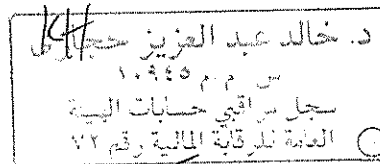 د. خالد عبد العزيز حجازي
س م م ١٠٩٤٥
سجل مراقبي حسابات الهيئة
العامة للرقابة المالية رقم ٧٢